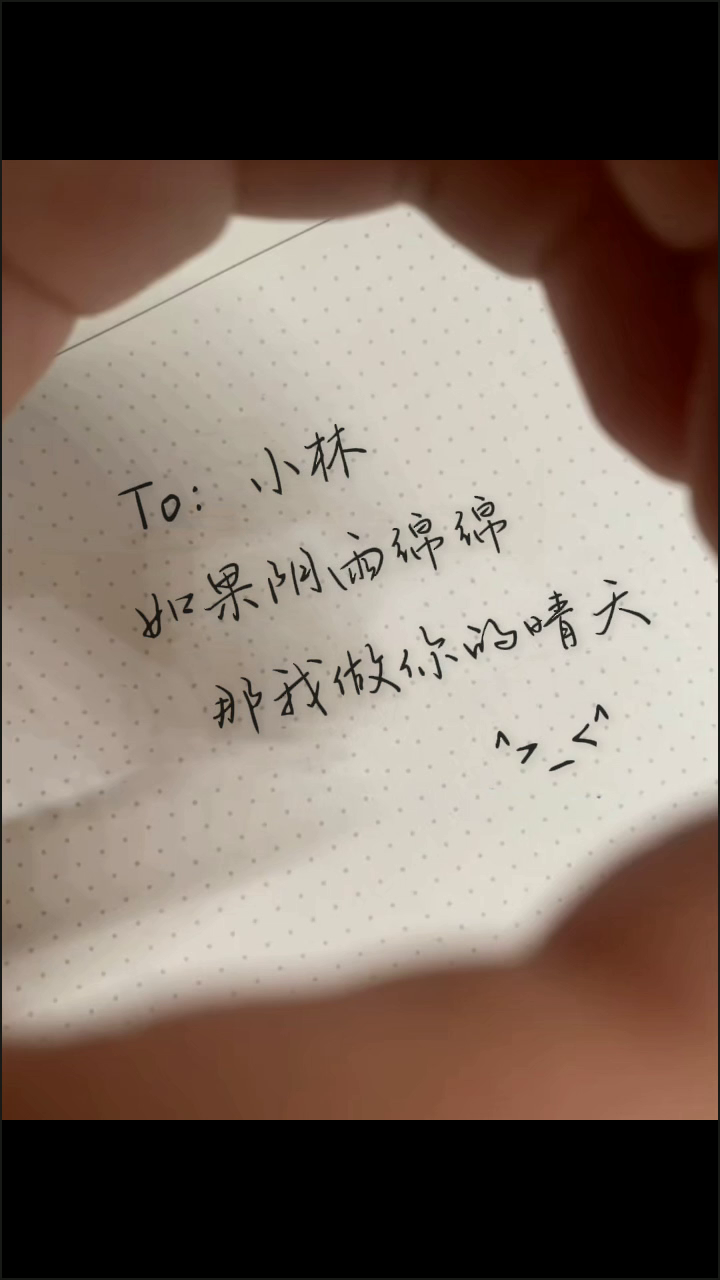 To: 小林
如果阴雨绵绵
那我做你的晴天
^>_<^